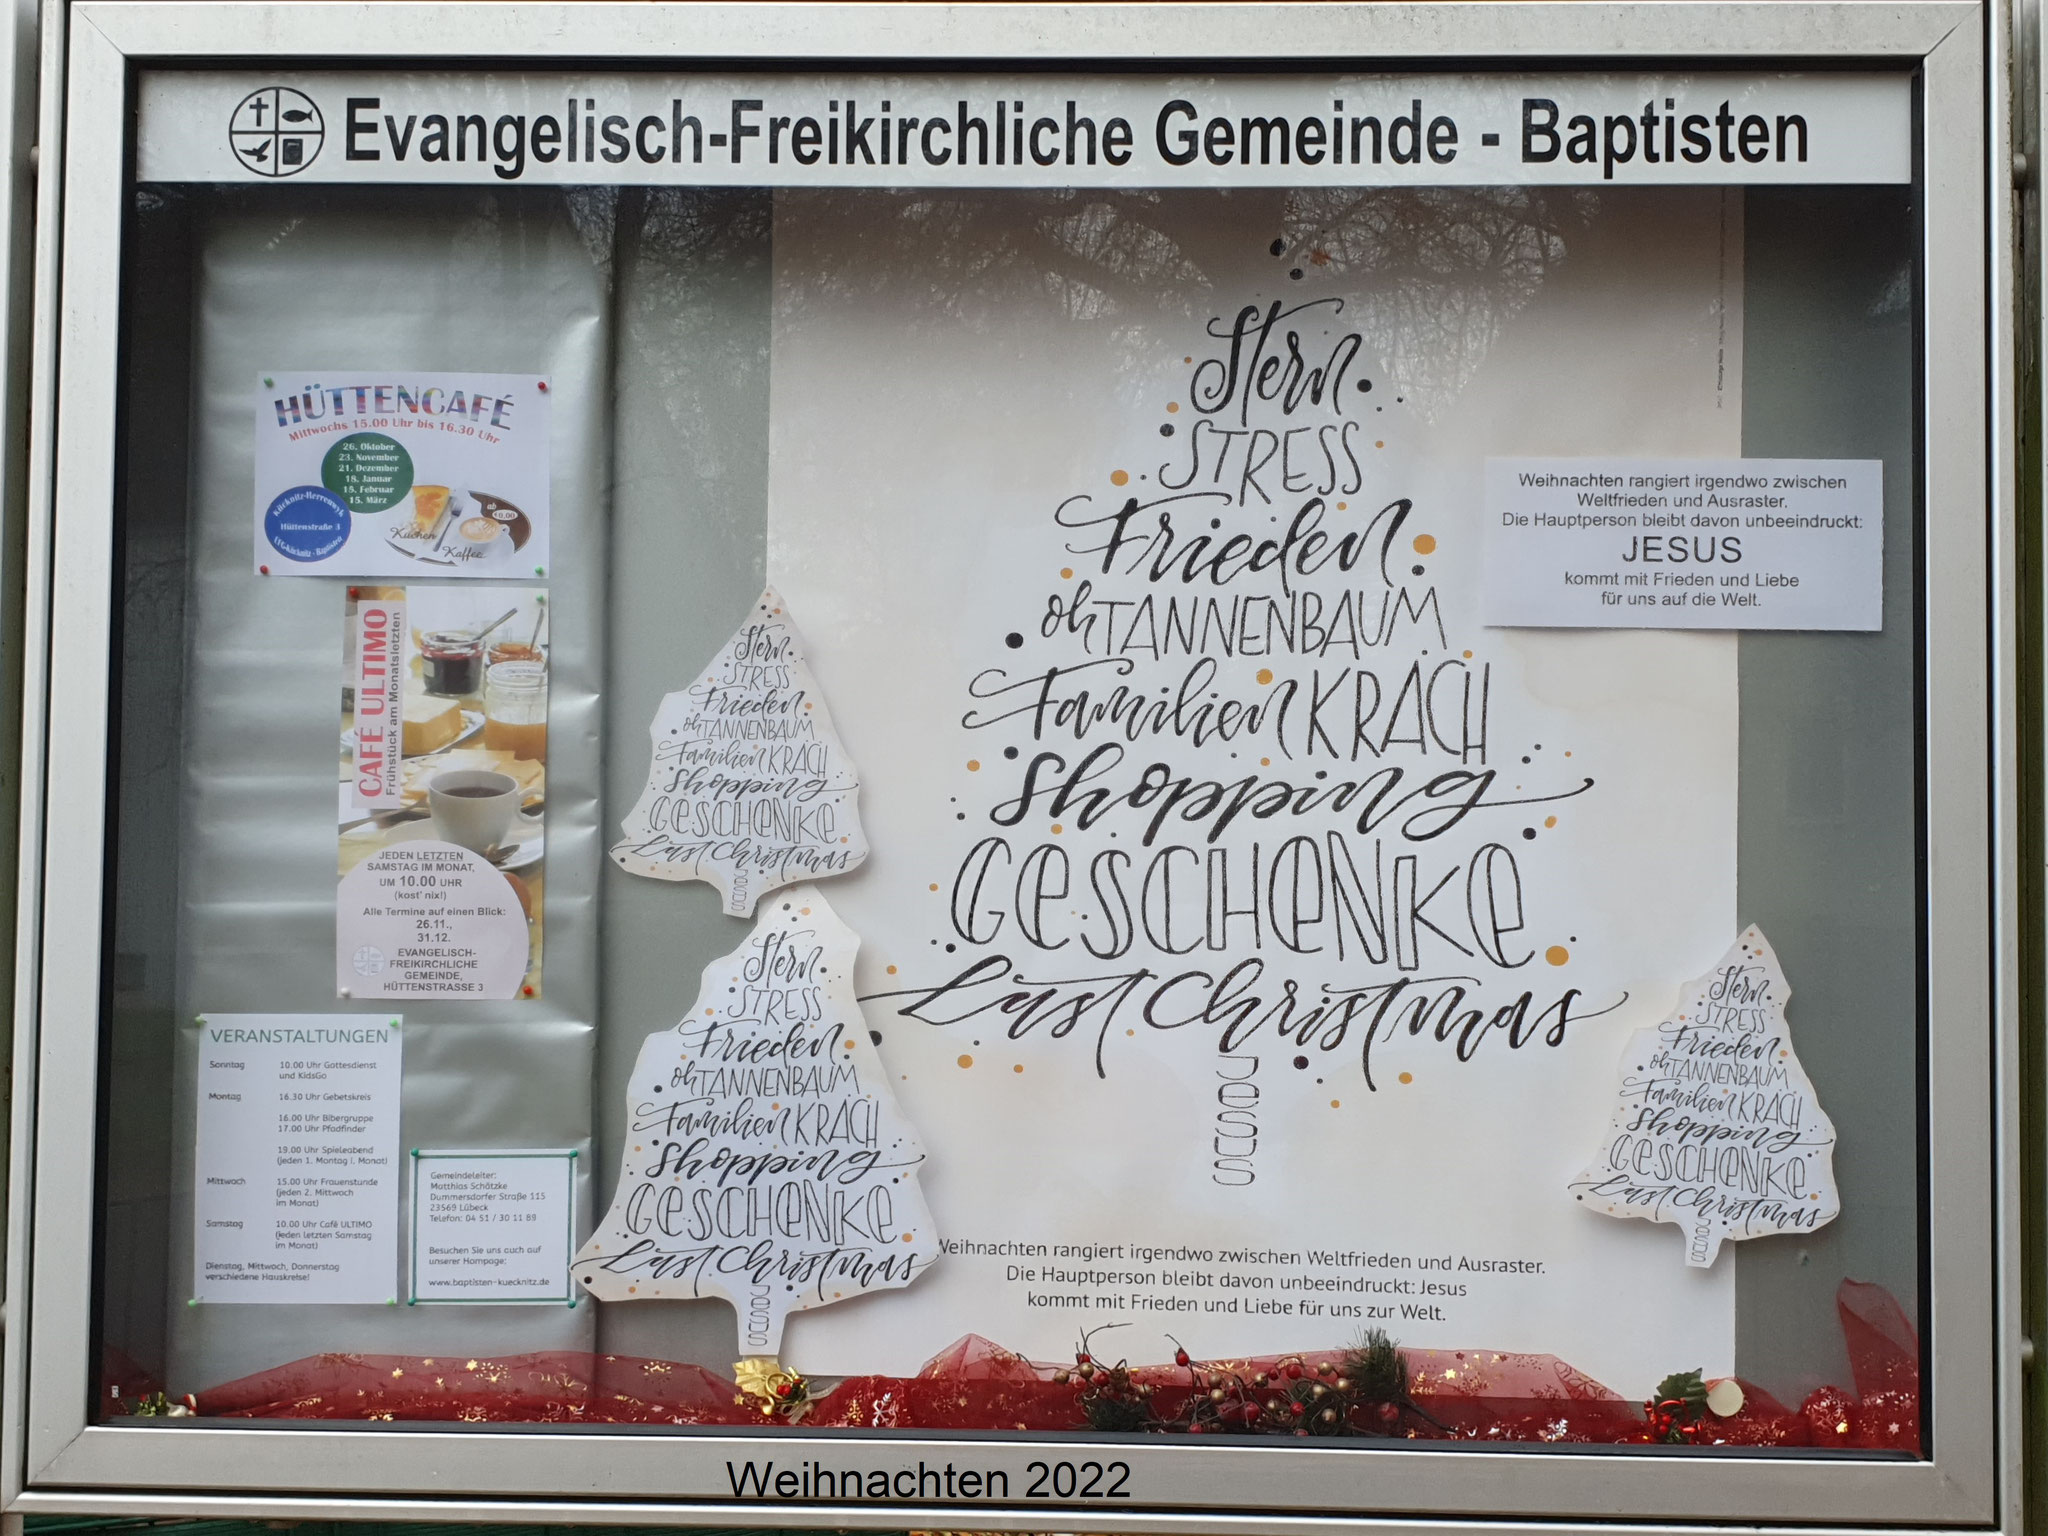 Evangelisch-Freikirchliche Gemeinde - Baptisten
HÜTTENCAFÉ
Mittwochs 15.00 Uhr bis 16.30 Uhr
26. Oktober
23. November
21. Dezember
18. Januar
15. Februar
15. März
Kücknitz-Herrenwyk
Hüttenstraße 3
EFG Kücknitz - Baptisten
Kuchen
Kaffee
ab
€0,00
CAFÉ ULTIMO
Frühstück am Monatsletzten
JEDEN LETZTEN
SAMSTAG IM MONAT,
UM 10.00 UHR
(kost' nix!)
Alle Termine auf einen Blick:
26.11.,
31.12.
EVANGELISCH-
FREIKIRCHLICHE
GEMEINDE,
HÜTTENSTRASSE 3
VERANSTALTUNGEN
Sonntag 10.00 Uhr Gottesdienst
und KidsGo
Montag 16.30 Uhr Gebetskreis
16.00 Uhr Bibergruppe
17.00 Uhr Pfadfinder
19.00 Uhr Spieleabend
(jeden 1. Montag i. Monat)
Mittwoch 15.00 Uhr Frauenstunde
(jeden 2. Mittwoch
im Monat)
Samstag 10.00 Uhr Café ULTIMO
(jeden letzten Samstag
im Monat)
Dienstag, Mittwoch, Donnerstag
verschiedene Hauskreise!
Gemeindeleiter:
Matthias Schätzke
Dummersdorfer Straße 115
23569 Lübeck
Telefon: 04 51 / 30 11 89
Besuchen Sie uns auch auf
unserer Hompage:
www.baptisten-kuecknitz.de
Stern
STRESS
Frieden
ohTANNENBAUM
FamilienKRACH
Shopping
GESCHENKE
Last Christmas
JESUS
Stern
STRESS
Frieden
ohTANNENBAUM
FamilienKRACH
Shopping
GESCHENKE
Last Christmas
JESUS
Stern
STRESS
Frieden
ohTANNENBAUM
FamilienKRACH
Shopping
GESCHENKE
Last Christmas
JESUS
Weihnachten rangiert irgendwo zwischen Weltfrieden und Ausraster.
Die Hauptperson bleibt davon unbeeindruckt: Jesus
kommt mit Frieden und Liebe für uns zur Welt.
Weihnachten rangiert irgendwo zwischen
Weltfrieden und Ausraster.
Die Hauptperson bleibt davon unbeeindruckt:
JESUS
kommt mit Frieden und Liebe
für uns auf die Welt.
Stern
STRESS
Frieden
ohTANNENBAUM
FamilienKRACH
Shopping
GESCHENKE
Last Christmas
JESUS
Weihnachten 2022